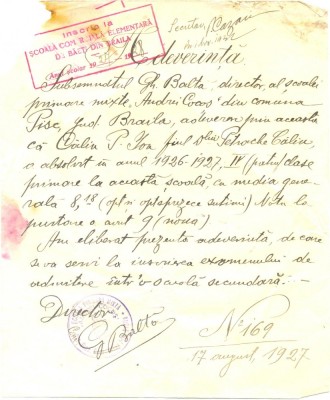 Inscris la
ȘCOALA COM. ELEMENTARĂ
BRĂILA
Anul școlar 19
Secretar, Cazan
Adeverință
Subsemnatul Gh. Balta, director, al școalei
primare mixte, "Andrei Cocoș" din comuna
Pisc, jud. Braila, adeverim prin aceasta
că Călin P. Ion fiul d-lui Petrache Călin,
a absolvit în anul 1926-1927, IV (patru) clase
primare la această școală, cu media gene-
rală 8,18 (opt și optsprezece sutimi) Nota la
purtare a avut 9 (nouă)
Am eliberat prezenta adeverință, de care
se va servi la înscrierea examenului de
admitere într'o școală secundară. —
Director,
G. Balta
No 169
17 august, 1927.